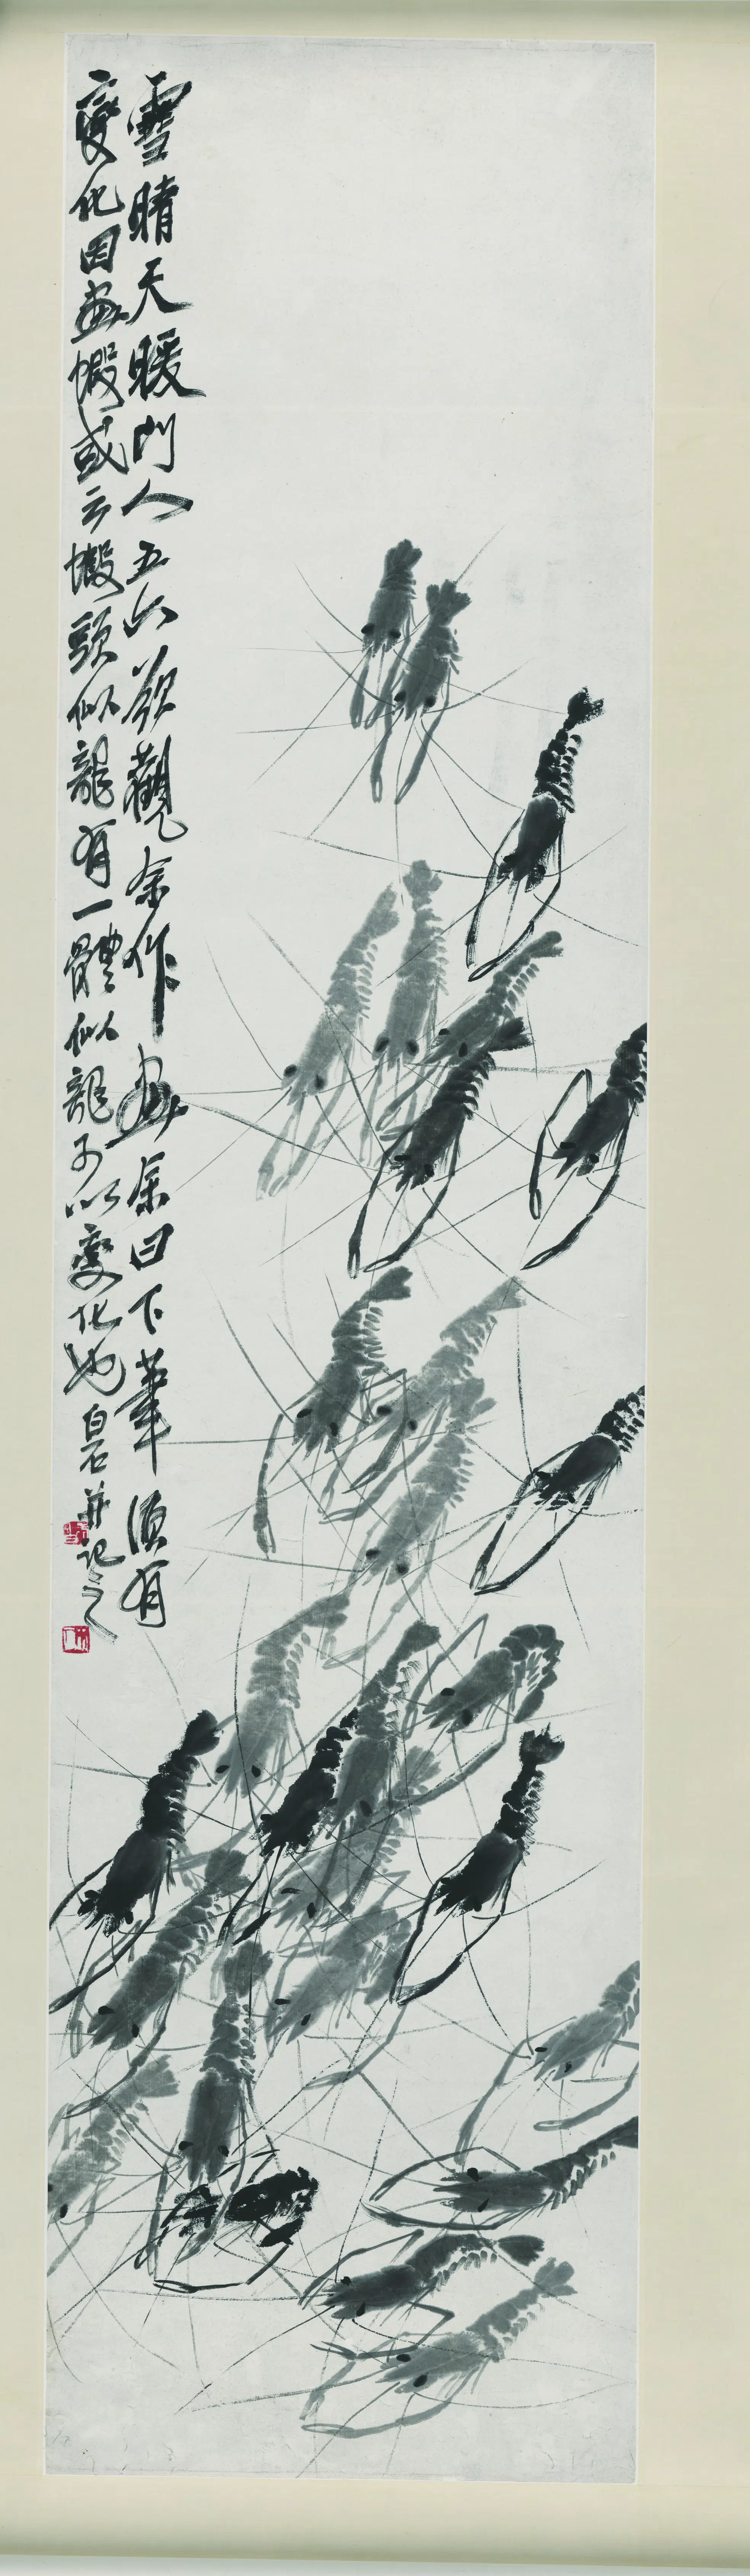 雪晴天暖門人五六欲觀余作畫余曰下筆須有
變化因畫蝦或云蝦頭似龍有一體似龍予以變化也白石并記之